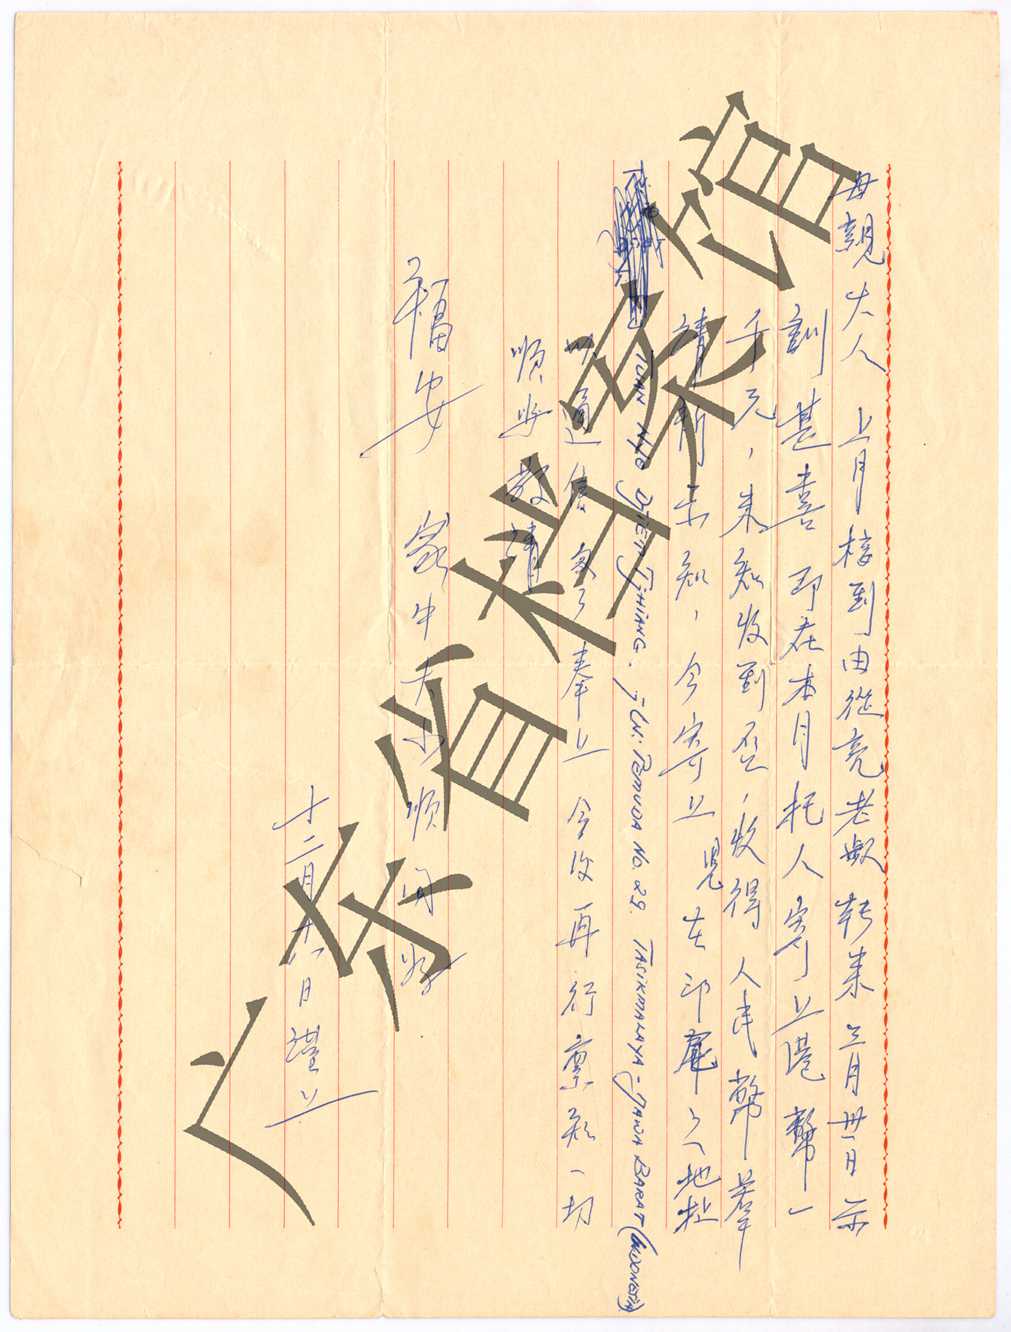 母親大人 上月接到由從亮老叔转来三月卅一日示
訓甚喜 即在本月托人寄上港幣一
千元，未知收到否，收得人民幣若干
請前示知，今寄上兒在印尼之地址
TUAN NJO DJIEN TJHIANG. DJLN: PEMUDA NO. 29. TASIKMALAYA - JAWA BARAT (INDONESIA)
以通信 奉上 今後再行禀知一切
順安 敬請
福安 家中大小順問好
十二月十八日 謹上
广东省档案馆